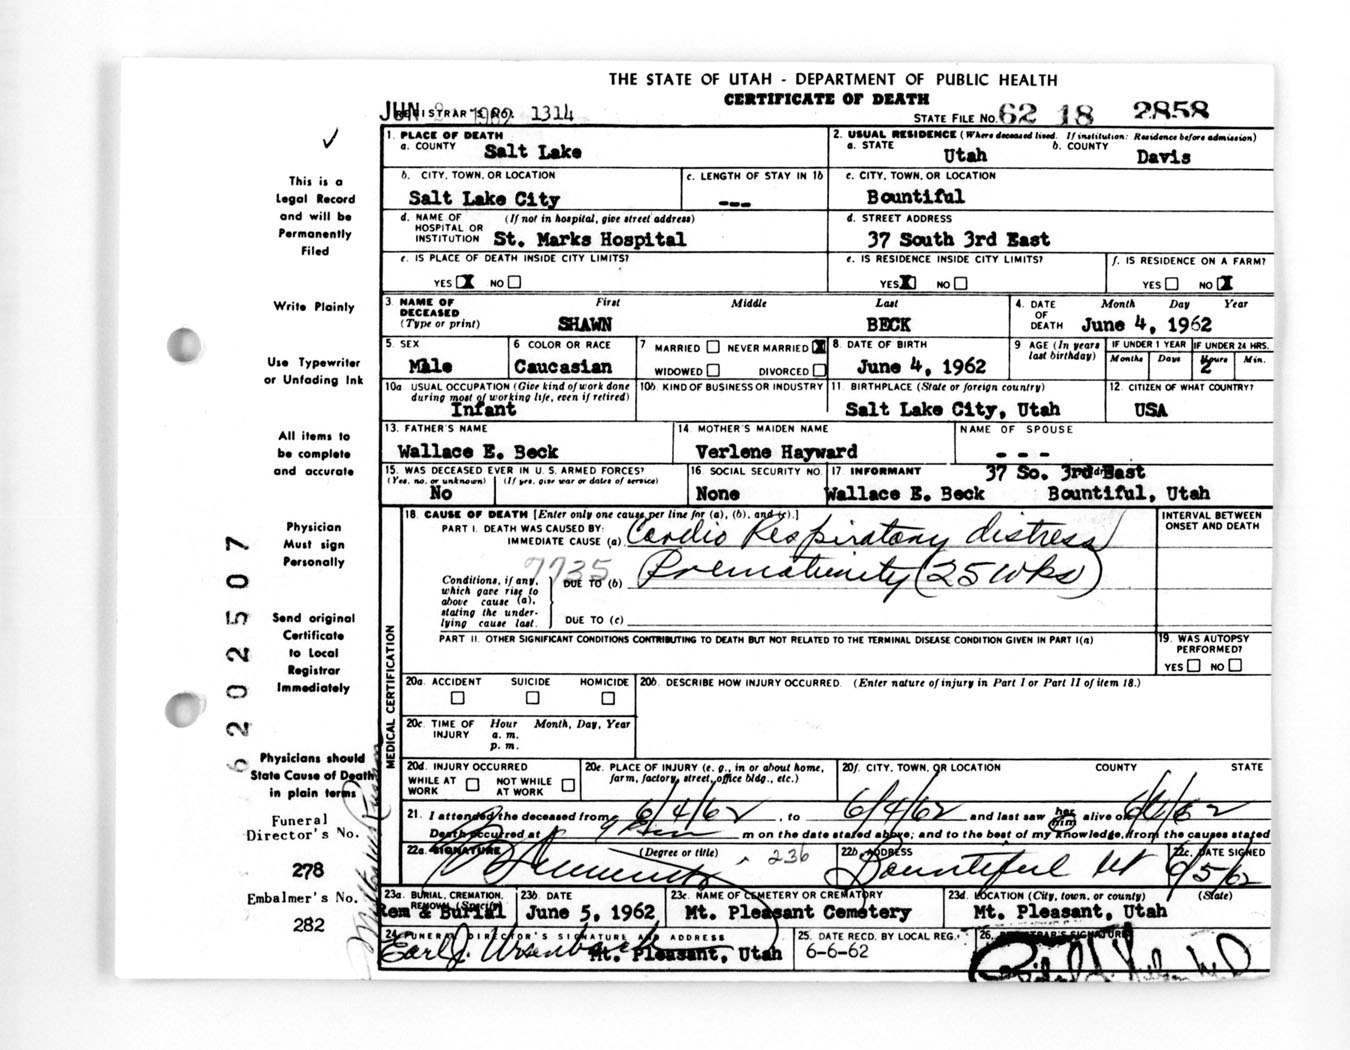 THE STATE OF UTAH - DEPARTMENT OF PUBLIC HEALTH
CERTIFICATE OF DEATH
JUN REGISTRAR'S NO. 1314
STATE FILE NO. 62 18 2858
1. PLACE OF DEATH
a. COUNTY Salt Lake
2. USUAL RESIDENCE (Where deceased lived. If institution: Residence before admission)
a. STATE Utah b. COUNTY Davis
b. CITY, TOWN, OR LOCATION Salt Lake City
c. LENGTH OF STAY IN 1b ---
c. CITY, TOWN, OR LOCATION Bountiful
d. NAME OF HOSPITAL OR INSTITUTION (If not in hospital, give street address) St. Marks Hospital
d. STREET ADDRESS 37 South 3rd East
e. IS PLACE OF DEATH INSIDE CITY LIMITS?
YES X NO
e. IS RESIDENCE INSIDE CITY LIMITS?
YES X NO
f. IS RESIDENCE ON A FARM?
YES NO X
3. NAME OF DECEASED (Type or print) First Middle Last
SHAWN BECK
4. DATE OF DEATH Month Day Year
June 4, 1962
5. SEX Male
6 COLOR OR RACE Caucasian
7 MARRIED NEVER MARRIED X
WIDOWED DIVORCED
8. DATE OF BIRTH June 4, 1962
9 AGE (In years last birthday)
IF UNDER 1 YEAR Months Days
IF UNDER 24 HRS. Hours Min.
2
10a USUAL OCCUPATION (Give kind of work done during most of working life, even if retired)
Infant
10b. KIND OF BUSINESS OR INDUSTRY
11. BIRTHPLACE (State or foreign country)
Salt Lake City, Utah
12. CITIZEN OF WHAT COUNTRY?
USA
13. FATHER'S NAME
Wallace E. Beck
14 MOTHER'S MAIDEN NAME
Verlene Hayward
NAME OF SPOUSE
- - -
15. WAS DECEASED EVER IN U.S. ARMED FORCES?
(Yes, no, or unknown) (If yes, give war or dates of service)
No
16. SOCIAL SECURITY NO.
None
17 INFORMANT 37 So. 3rd East
Wallace E. Beck Bountiful, Utah
18. CAUSE OF DEATH [Enter only one cause per line for (a), (b), and (c).]
PART I. DEATH WAS CAUSED BY:
IMMEDIATE CAUSE (a) Cardio Respiratory distress
7735
Conditions, if any, which gave rise to above cause (a), stating the underlying cause last.
DUE TO (b) Prematurity (25 wks)
DUE TO (c)
INTERVAL BETWEEN ONSET AND DEATH
PART II. OTHER SIGNIFICANT CONDITIONS CONTRIBUTING TO DEATH BUT NOT RELATED TO THE TERMINAL DISEASE CONDITION GIVEN IN PART I(a)
19. WAS AUTOPSY PERFORMED?
YES NO
MEDICAL CERTIFICATION
20a. ACCIDENT SUICIDE HOMICIDE
20b. DESCRIBE HOW INJURY OCCURRED. (Enter nature of injury in Part I or Part II of item 18.)
20c. TIME OF INJURY Hour Month, Day, Year
a. m.
p. m.
20d. INJURY OCCURRED
WHILE AT WORK NOT WHILE AT WORK
20e. PLACE OF INJURY (e. g., in or about home, farm, factory, street, office bldg., etc.)
20f. CITY, TOWN, OR LOCATION COUNTY STATE
21. I attended the deceased from 6/4/62, to 6/4/62 and last saw her him alive on
Death occurred at m on the date stated above; and to the best of my knowledge, from the causes stated
22a. SIGNATURE (Degree or title) 236
22b. ADDRESS Bountiful Ut
22c. DATE SIGNED 6/5/62
23a. BURIAL, CREMATION, REMOVAL (Specify)
Rem & Burial
23b. DATE
June 5, 1962
23c. NAME OF CEMETERY OR CREMATORY
Mt. Pleasant Cemetery
23d. LOCATION (City, town, or county) (State)
Mt. Pleasant, Utah
24. FUNERAL DIRECTOR'S SIGNATURE AND ADDRESS
Earl J. Mt. Pleasant, Utah
25. DATE RECD. BY LOCAL REG.
6-6-62
26. REGISTRAR'S SIGNATURE
This is a
Legal Record
and will be
Permanently
Filed
Write Plainly
Use Typewriter
or Unfading Ink
All items to
be complete
and accurate
Physician
Must sign
Personally
Send original
Certificate
to Local
Registrar
Immediately
Physicians should
State Cause of Death
in plain terms
Funeral
Director's No.
278
Embalmer's No.
282
6202507